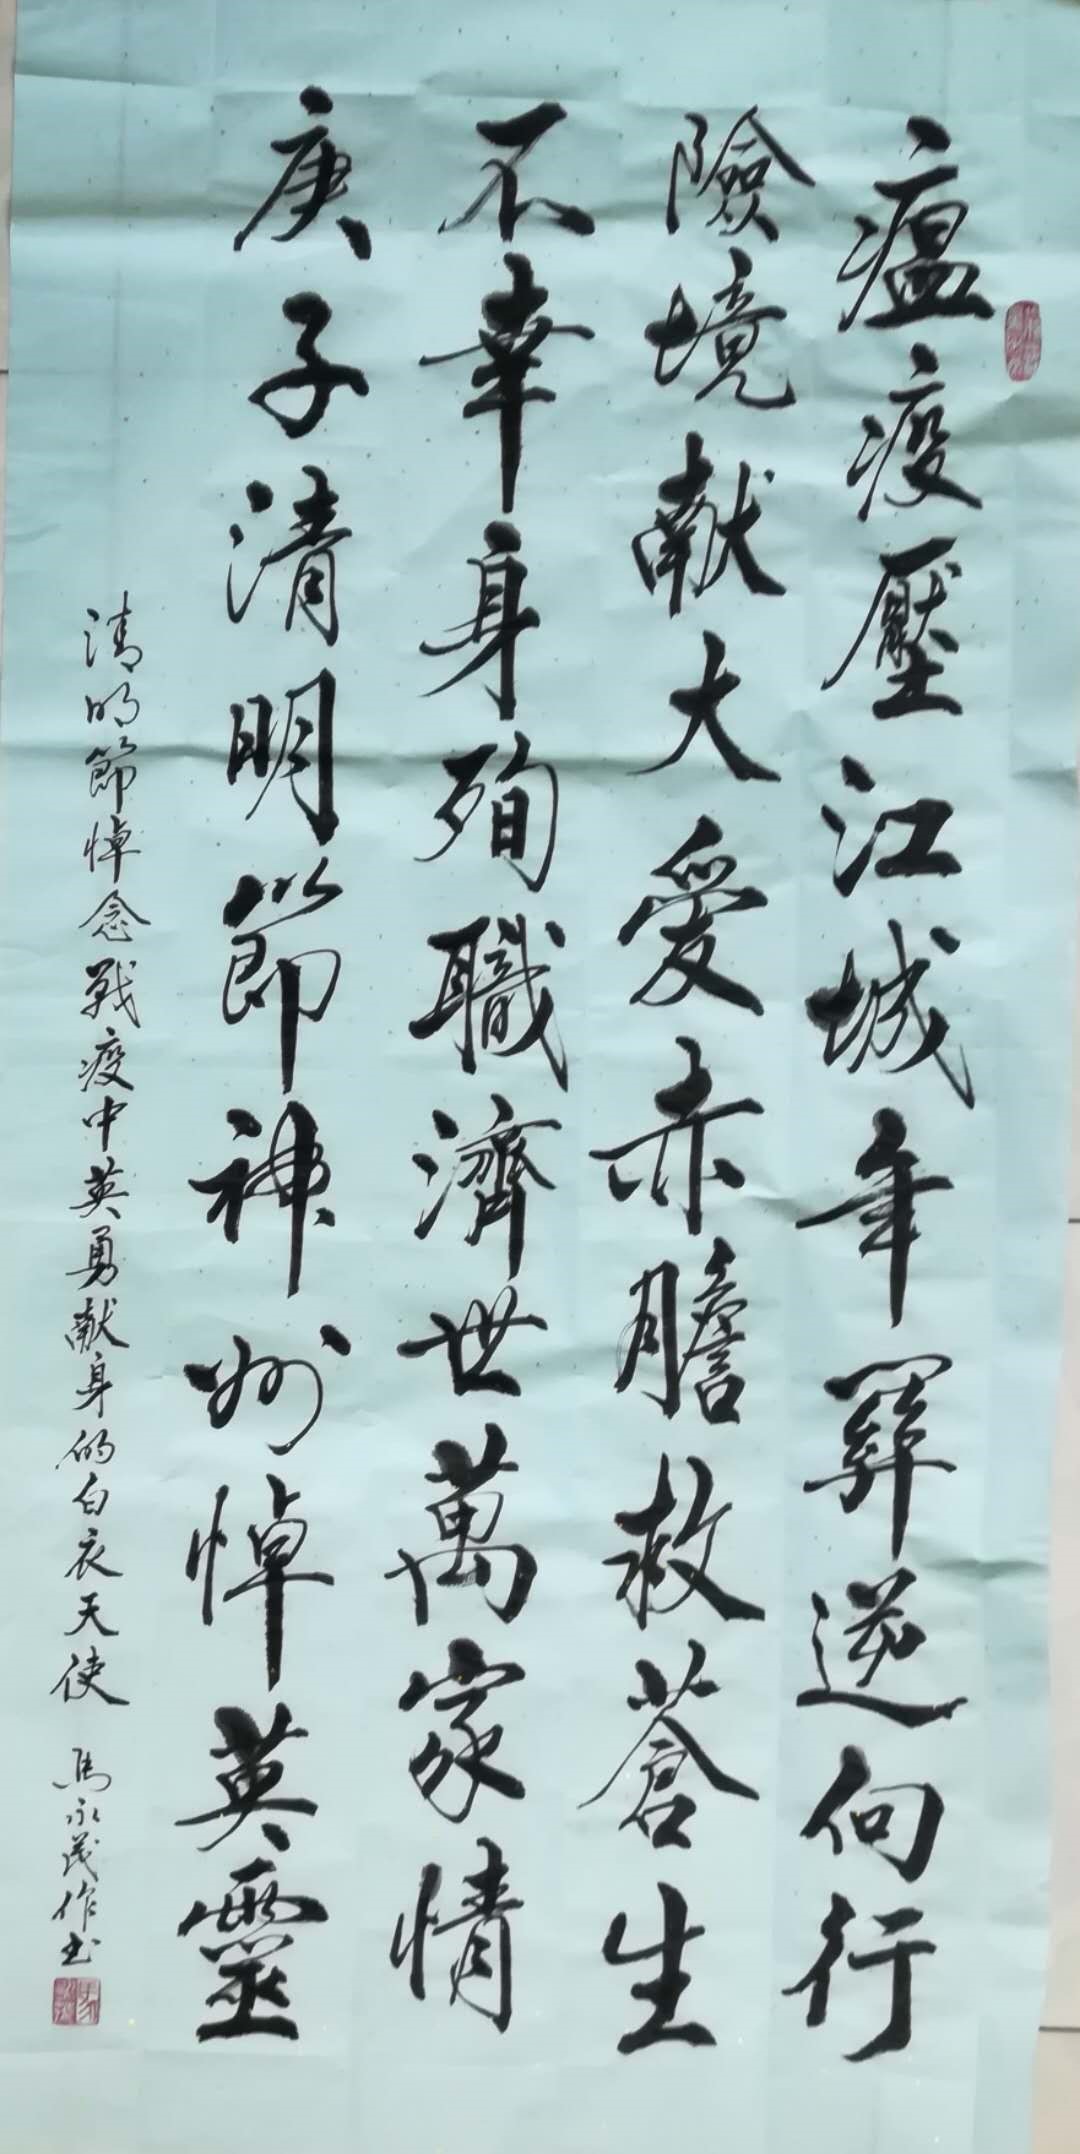 瘟疫壓江城年關逆向行
險境献大愛赤膽救蒼生
不幸身殉職濟世萬家情
庚子清明節神州悼英靈
清明節悼念戰疫中英勇献身的白衣天使 馬永茂作书